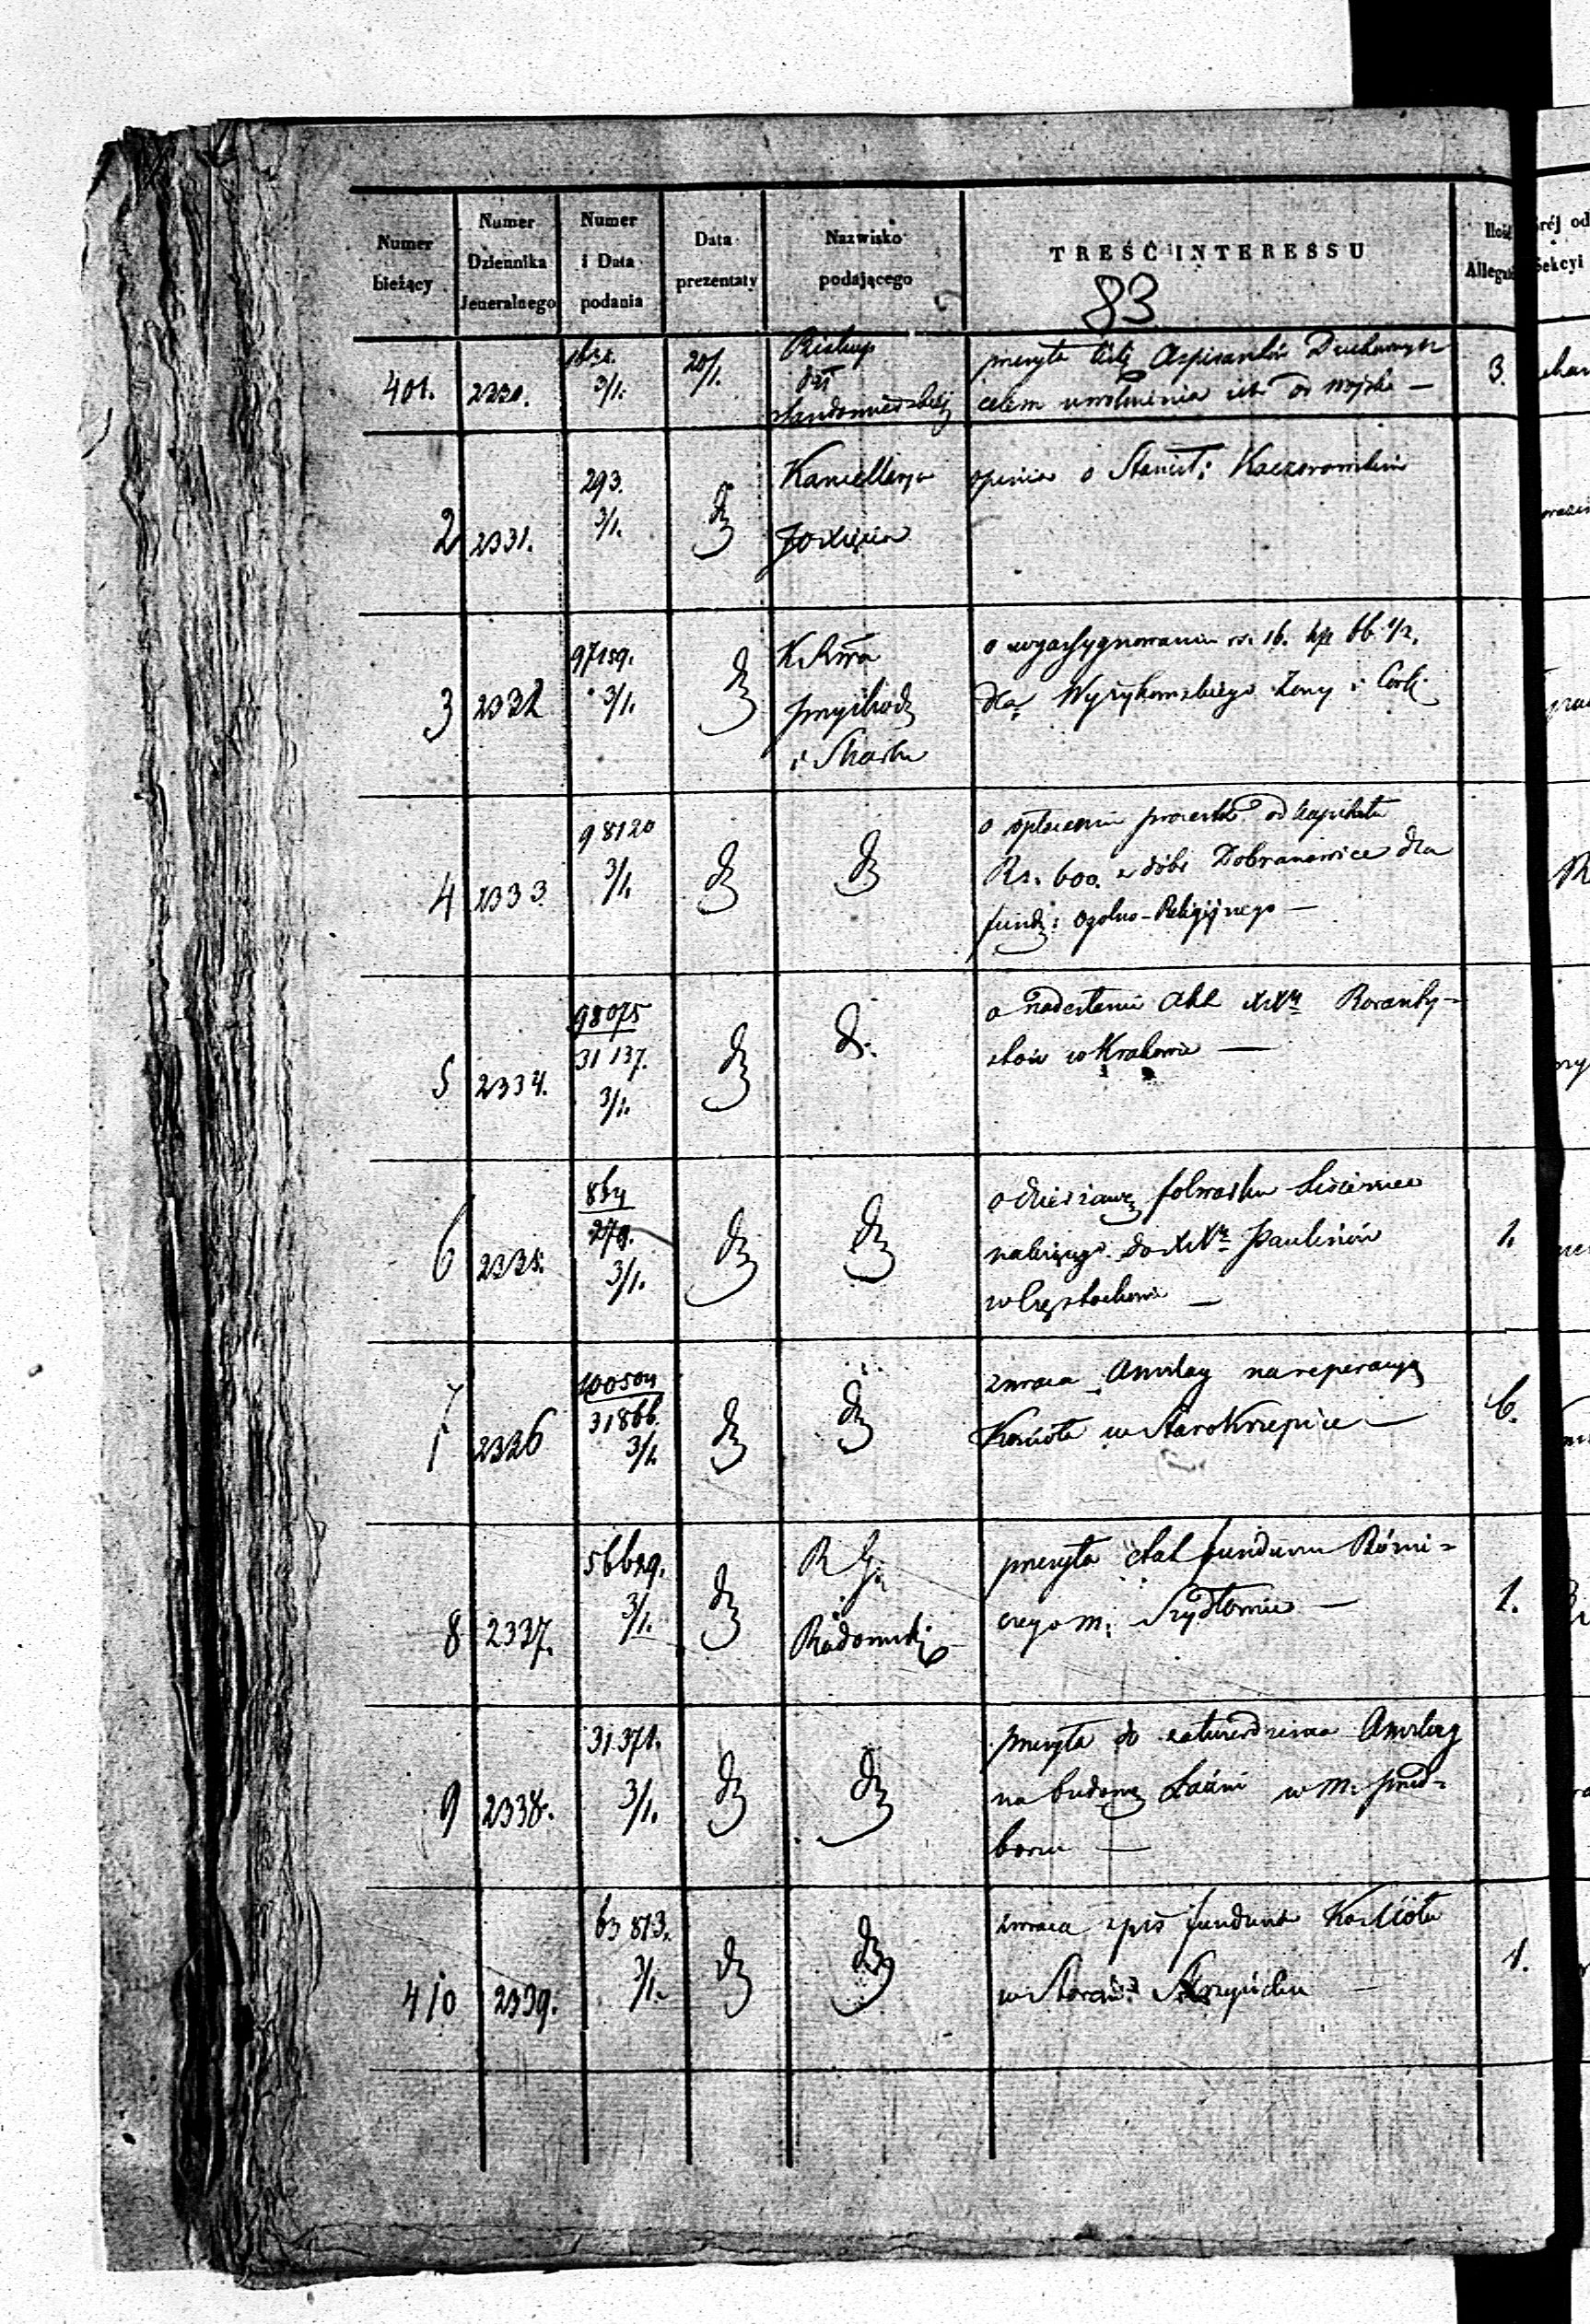 Numer bieżący
Numer Dziennika Jeneralnego
Numer i Data podania
Data prezentaty
Nazwisko podającego
TREŚĆ INTERESSU
83
401. 2330. 3/1. 20/1. Biskup
przesyła listę Aspirantów Duchownych
celem uwolnienia ich od wojska — 3.
2 2331. 293. 3/1. dt Kancellarya
opinia o Stanisł: Kaczorowskim
3 2332 97159. 3/1. dt
o wyassygnowanie rs. 16. kp. 66 1/2.
dla Wyrzykowskiego Żony i Córki
i Skarbu
4 2333 98120 3/1. dt dt
o opłacenie procentu od kapitału
Rs. 600. z dóbr Dobranowice dla
fund: Ogólno-Religijnego —
5 2334. 98075 31137. 3/1. dt dt
o nadesłanie Akt XXży Roranty=
stów w Krakowie —
6 2335. 864 279. 3/1. dt dt
o dzierżawę folwarku
należącego do XXży Paulinów
w Częstochowie — 1.
7 2336 100504 31866. 3/1. dt dt
zwraca Anszlag na reperacyą
Kościoła w Starokrzepice — 6.
8 2337. 56629. 3/1. dt R G: Radomski
przesyła etat funduszu Bóżni=
czego m: Szydłowie — 1.
9 2338. 31371. 3/1. dt dt
przesyła do zatwierdzenia Anszlag
na budowę Łaźni w m. Przed=
borzu —
410 2339. 63813. 3/1. dt dt
zwraca spis funduszu Kościoła
w Skrzyńsku — 1.